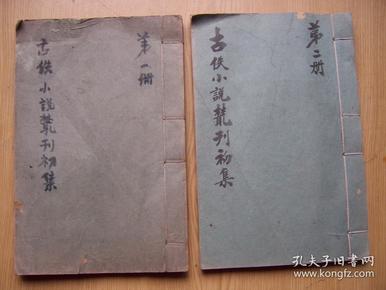 第一册
古佚小說叢刊初集
第二册
古佚小說叢刊初集
孔夫子旧书网